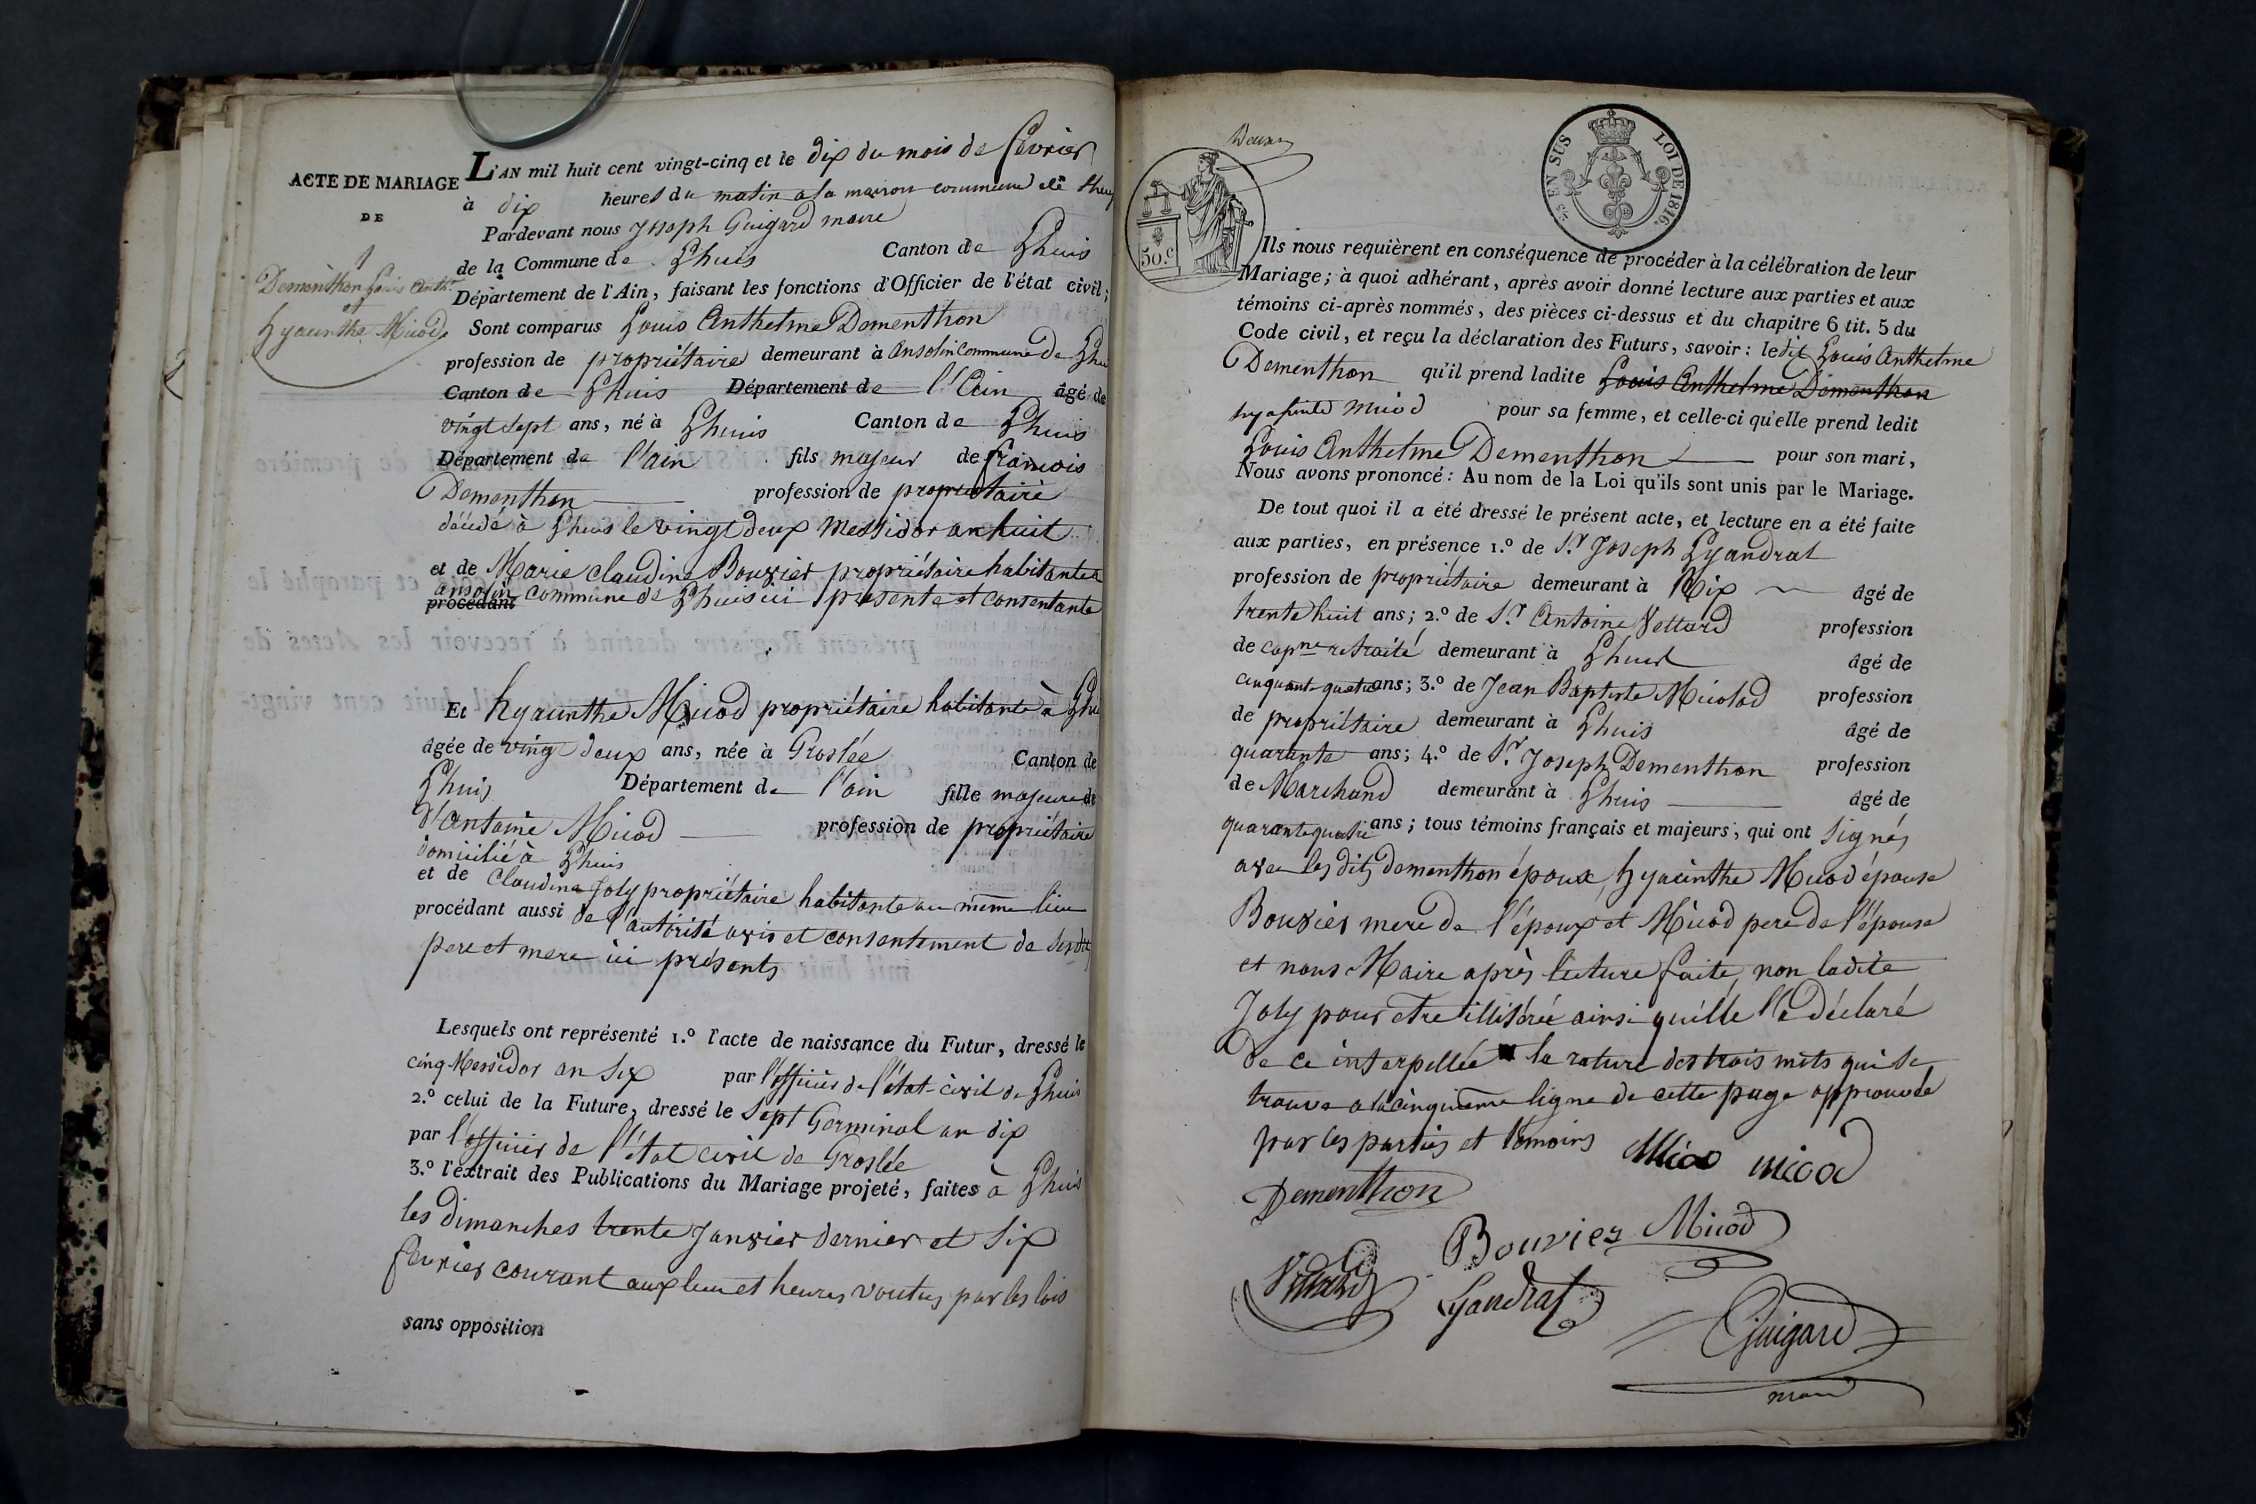 ACTE DE MARIAGE
DE
1
Dementhon Louis Anthe
et
hyacinthe Micod
L'AN mil huit cent vingt-cinq et le dix du mois de février
à dix heures du matin a la maison commune de Lhuis
Pardevant nous Joseph Guigard maire
de la Commune de Lhuis Canton de Lhuis
Département de l'Ain, faisant les fonctions d'Officier de l'état civil;
Sont comparus Louis Anthelme Dementhon
profession de propriétaire demeurant à Ansolin Commune de Lhui
Canton de Lhuis Département de l'Ain âgé de
vingt sept ans, né à Lhuis Canton de Lhuis
Département de l'ain fils majeur de françois
Dementhon profession de propriétaire
décédé à Lhuis le vingt deux Messidor an huit
et de Marie claudine Bouvier propriétaire habitante a
ansolin commune de Lhuis ici présente et consentante
procédant
Et hyacinthe Micod propriétaire habitante à Lhu
âgée de vingt deux ans, née à Groslée Canton de
Lhuis Département de l'ain fille majeure de
d'Antoine Micod profession de propriétaire
domicilié à Lhuis
et de Claudine Joly propriétaire habitante au même lieu
procédant aussi de l'autorité avis et consentement de sesdits
pere et mere ici présents
Lesquels ont représenté 1.º l'acte de naissance du Futur, dressé le
cinq Messidor an six par l'officier de l'état-civil de Lhuis
2.º celui de la Future, dressé le sept Germinal an dix
par l'officier de l'état civil de Groslée
3.º l'extrait des Publications du Mariage projeté, faites à Lhuis
les dimanches trente Janvier dernier et six
février courant aux lieu et heures voulus par les lois
sans opposition
Deux
50.c
5/5 EN SUS LOI DE 1816.
Ils nous requièrent en conséquence de procéder à la célébration de leur
Mariage; à quoi adhérant, après avoir donné lecture aux parties et aux
témoins ci-après nommés, des pièces ci-dessus et du chapitre 6 tit. 5 du
Code civil, et reçu la déclaration des Futurs, savoir: ledit Louis Anthelme
Dementhon qu'il prend ladite Louis Anthelme Dementhon
hyasinte Micod pour sa femme, et celle-ci qu'elle prend ledit
Louis Anthelme Dementhon pour son mari,
Nous avons prononcé: Au nom de la Loi qu'ils sont unis par le Mariage.
De tout quoi il a été dressé le présent acte, et lecture en a été faite
aux parties, en présence 1.º de S.r Joseph Lyandrat
profession de propriétaire demeurant à Rix âgé de
trente huit ans; 2.º de S.r Antoine Vettard profession
de capne retraité demeurant à Lhuis âgé de
cinquante-quatre ans; 3.º de Jean Baptiste Micolod profession
de propriétaire demeurant à Lhuis âgé de
quarante ans; 4.º de S.r Joseph Dementhon profession
de Marchand demeurant à Lhuis âgé de
quarante quatre ans; tous témoins français et majeurs, qui ont signés
avec les dits dementhon époux, hyacinthe Micod épouse
Bouvier mere de l'époux et Micod pere de l'épouse
et nous Maire après lecture faite, non ladite
Joly pour etre illitérée ainsi quélle l'a déclaré
de ce interpellée la rature des trois mots qui se
trouve a la cinquième ligne de cette page approuvée
par les parties et témoins Micod micod
Dementhon
Bouvier Micod
Vettard
Lyandrat
Guigard
maire